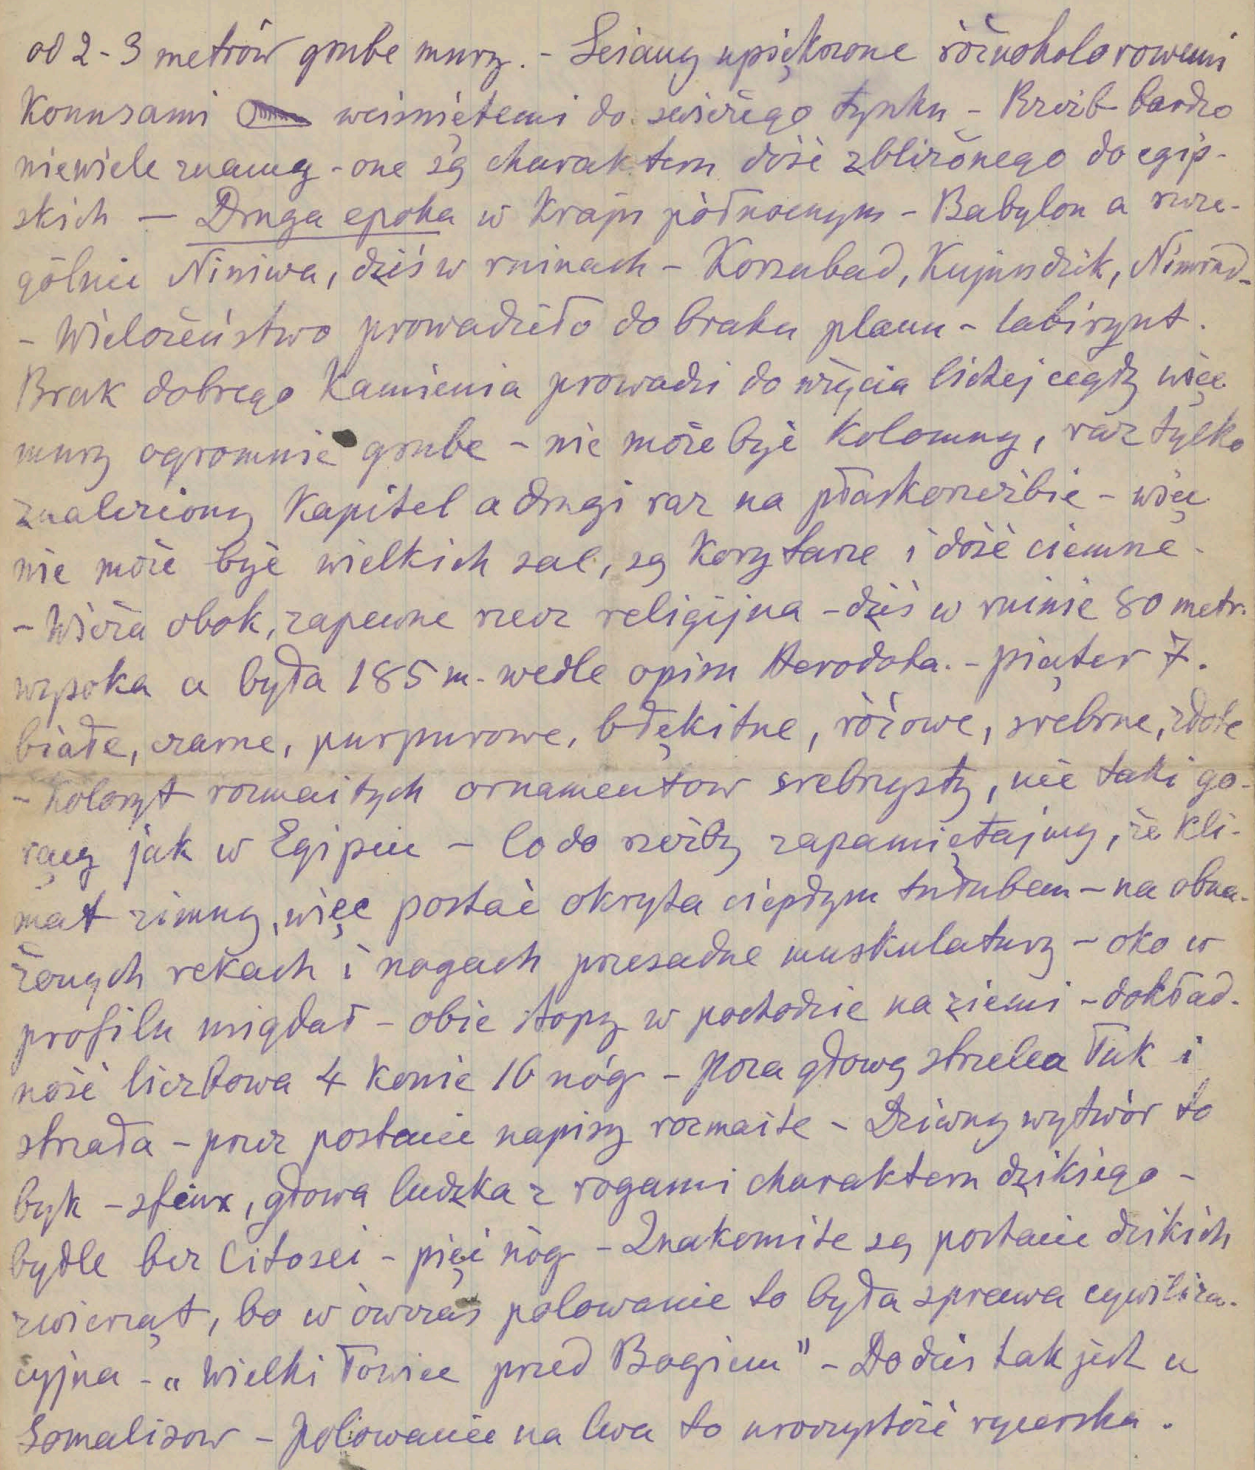 od 2-3 metrów grube mury. - Ściany upiększone różnokolorowemi
Konusami wciśniętemi do świeżego tynku - Rzeźb bardzo
niewiele znamy - one są charakteru dość zbliżonego do egip-
skich — Druga epoka w Kraju północnym - Babylon a szcze-
gólnie Niniwa, dziś w ruinach - Korsabad, Kujundżik, Nimrud-
- Wielożeństwo prowadziło do braku planu - labirynt.
Brak dobrego Kamienia prowadzi do użycia lichej cegły więc
mury ogromnie grube - nie może być Kolumny, raz tylko
znaleziony Kapitel a drugi raz na płaskorzeźbie - więc
nie może być wielkich sal, są Korytarze i dość ciemne -
- Wieża obok, zapewne rzecz religijna - dziś w ruinie 80 metr.
wysoka a była 185 m. wedle opisu Herodota. - pięter 7.
białe, czarne, purpurowe, błękitne, różowe, srebrne, złote
- Koloryt rozmaitych ornamentow srebrzysty, nie taki go-
rący jak w Egipcie - Co do rzeźby zapamiętajmy, że kli-
mat zimny, więc postać okryta ciepłym tułubem - na obna-
żonych rękach i nogach przesadne muskulatury - oko w
profilu migdał - obie stopy w pochodzie na ziemi - dokład-
ność liczbowa 4 Konie 16 nóg - Poza głową strzelca Łuk i
strzała - przez postacie napisy rozmaite - Dziwny wytwór to
byk - sfinx, głowa ludzka z rogami charakteru dzikiego -
bydle bez litości - pięć nóg - Znakomite są postacie dzikich
zwierząt, bo w ówczas polowanie to była sprawa cywiliza-
cyjna - „Wielki Łowiec przed Bogiem" - Do dziś tak jest u
Somalisow - polowanie na lwa to uroczystość rycerska.